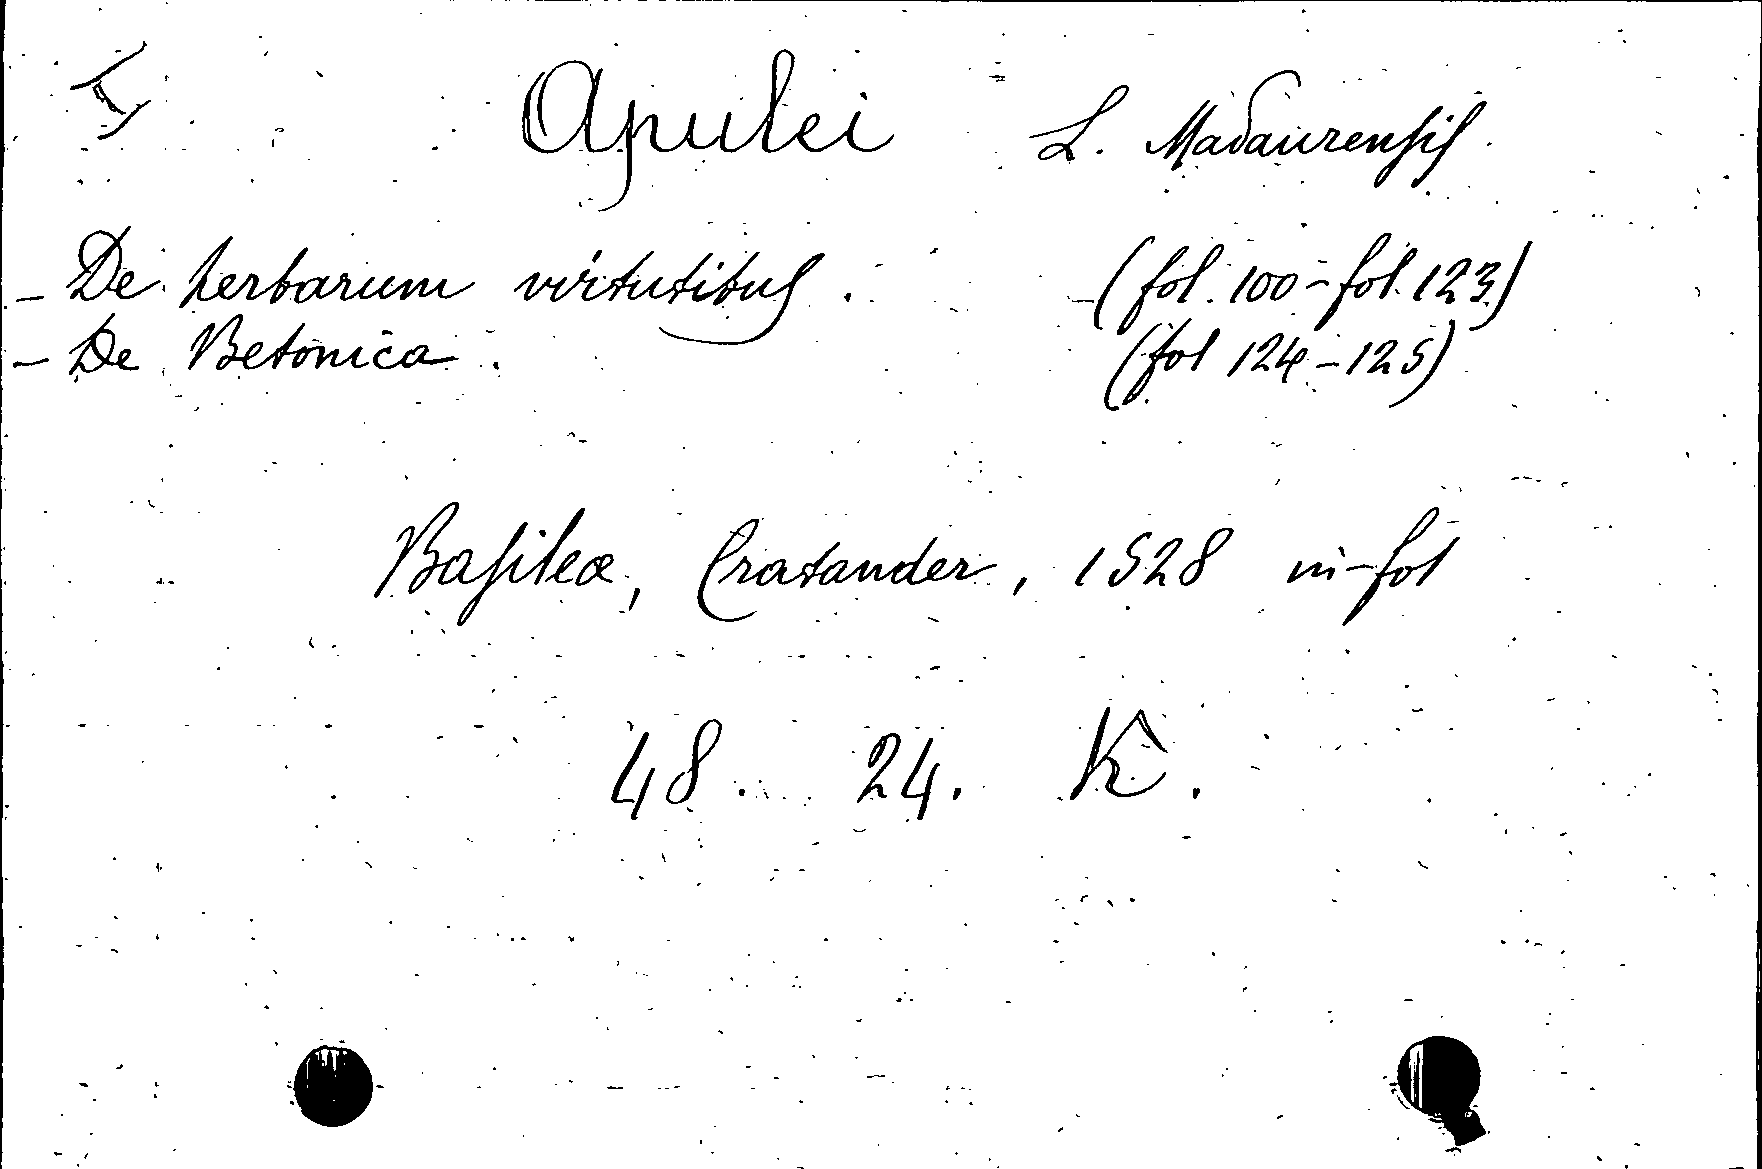 Apulei L. Madaurensis
- De herbarum virtutibus. (fol. 100 - fol. 123)
- De Betonica. (fol 124 - 125)
Basileæ, Cratander, 1528 in-fol
48. 24. K.